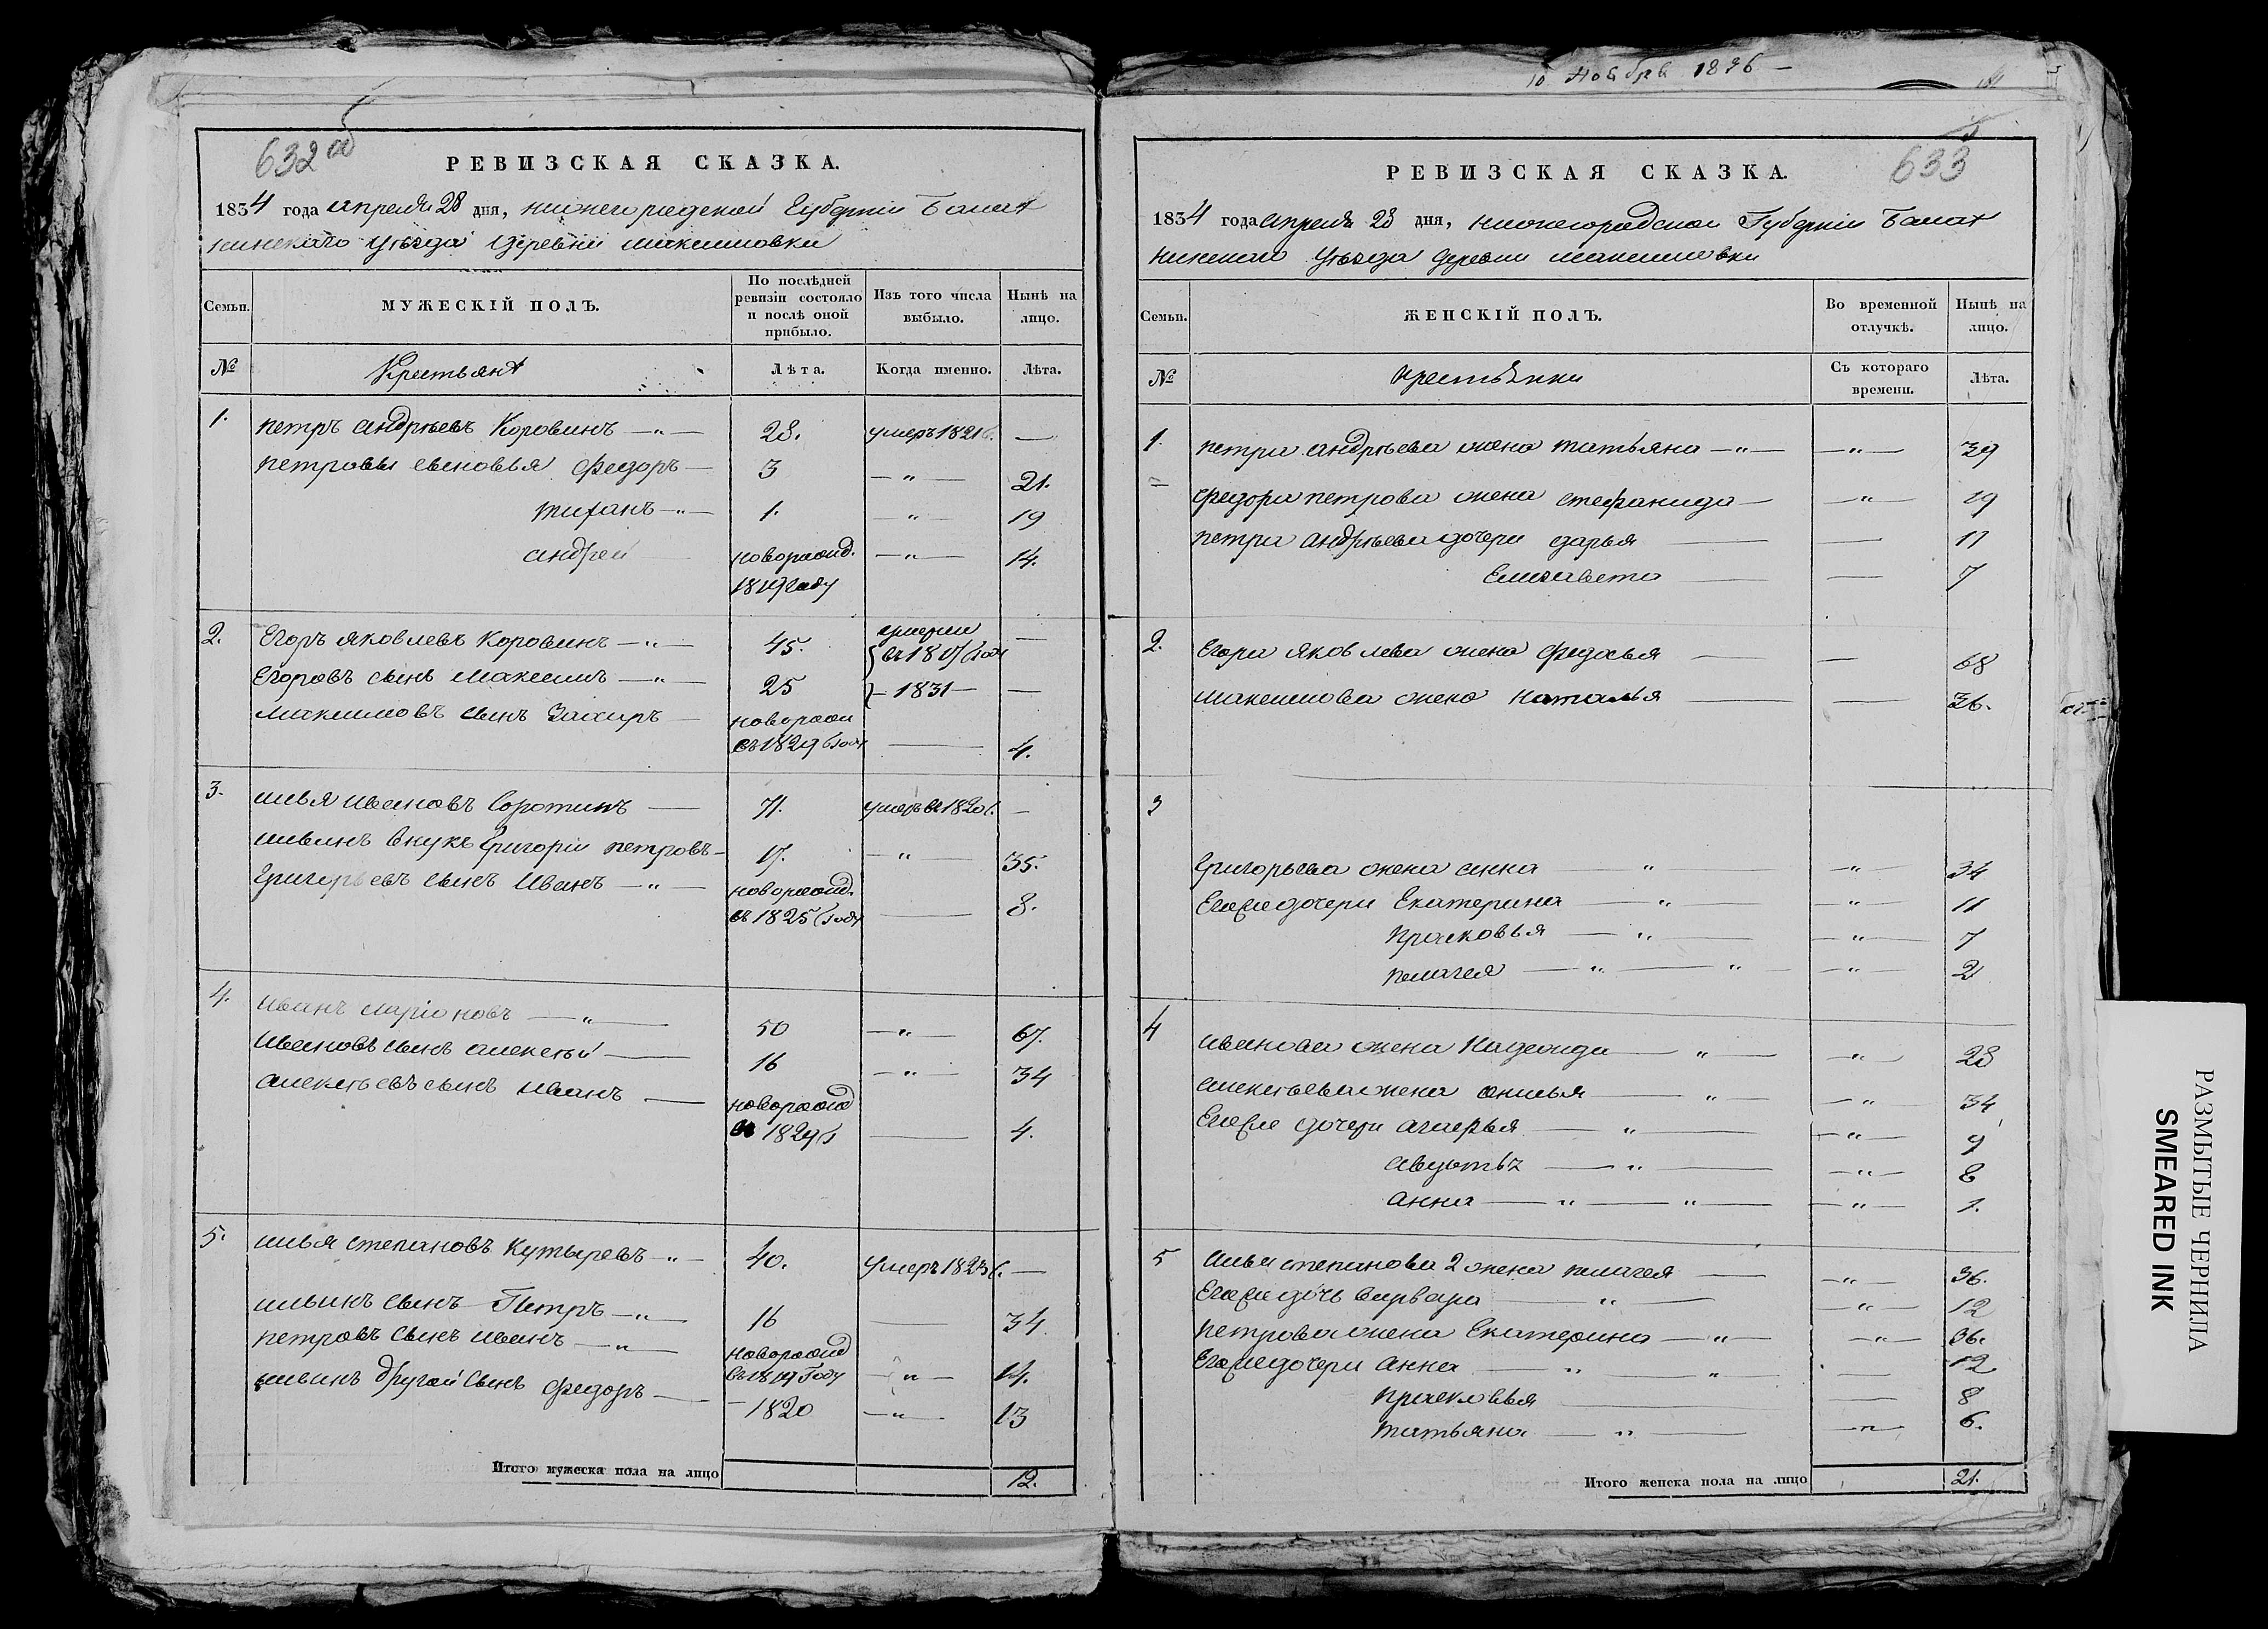 632 об
РЕВИЗСКАЯ СКАЗКА.
1834 года апреля 28 дня, нижегородской Губернiи Балах
нинскаго уѣзда деревни максимовки
Семьи.
МУЖЕСКІЙ ПОЛЪ.
По послѣдней ревизіи состояло и послѣ оной прибыло.
Изъ того числа выбыло.
Нынѣ на лицо.
№
Крестьянъ
Лѣта.
Когда именно.
Лѣта.
1. петръ андрѣевъ Коровинъ —"— 28. умеръ 1821 г. —
петровы сыновья федоръ — 3 —"— 21.
тифанъ —"— 1. —"— 19
андрей новорожд. —"— 14.
1819 году
2. Егоръ яковлевъ Коровинъ —"— 45. умерли —
въ 1817 году
Егоровъ сынъ Максимъ —"— 25 — 1831 — —
Максимовъ сынъ Захаръ — новорож
въ 1829 году — 4.
3. илья ивановъ Соротинъ — 71. умеръ въ 1820 г. —
ильинъ внукъ Григорiй петровъ — 17. —"— 35.
Григорьевъ сынъ Иванъ —"— новорожд.
въ 1825 году — 8.
4. иванъ ларiоновъ —"— 50 —"— 67.
Ивановъ сынъ алексѣй — 16 —"— 34
алексѣевъ сынъ иванъ — новорожд
въ 1829 г — 4.
5. илья степановъ Кутыревъ —"— 40. умеръ 1823 г. —
ильинъ сынъ Петръ —"— 16 — 34.
петровъ сынъ иванъ —"— новорожд
въ 1819 Году —"— 14.
ильинъ другой сынъ федоръ — — 1820 —"— 13
Итого мужеска пола на лицо 12.
10 Ноября 1896 —
633
РЕВИЗСКАЯ СКАЗКА.
1834 года апреля 28 дня, нижегородской Губернiи Балах
нинскаго уѣзда деревни максимовки
Семьи.
ЖЕНСКІЙ ПОЛЪ.
Во временной отлучкѣ.
Нынѣ на лицо.
№
крестьянки
Съ котораго времени.
Лѣта.
1. петра андрѣева жена татьяна —"— —"— 39
федора петрова жена стефанида — —"— 19
петра андрѣева дочери дарья — — 11
Елизавета — — 7
2. Егора яковлева жена федосья — — 68
максимова жена наталья — — 36.
3
Григорьева жена анна —"— —"— 34
Его же дочери Екатерина —"— —"— 11
прасковья —"— —"— 7
пелагея —"—"— —"— 2
4 иванова жена Надежда —"— —"— 28
алексѣева жена акилья —"— —"— 34
Его же дочери агафья —"— —"— 9
авдотья —"— —"— 8
анна —"—"— —"— 1.
5 ильи степанова 2 жена пелагея — —"— 36.
Его же дочь варвара —"— —"— 12
петрова жена Екатерина —"— —"— 36.
Его же дочери анна —"—"— — 12
прасковья — — 8
татьяна —"— —"— 6.
Итого женска пола на лицо 21.
РАЗМЫТЫЕ ЧЕРНИЛА
SMEARED INK